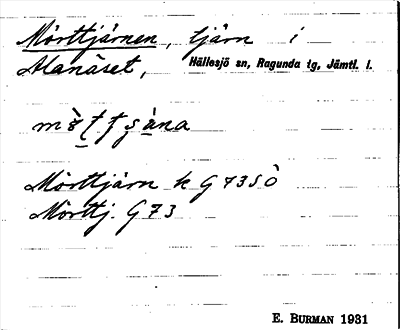 Mörttjärnen, tjärn i
Alanäset, Hällesjö sn, Ragunda tg, Jämtl. l.
Mörttjärn k G 73 S Ö
Mörttj. G 73
E. BURMAN 1931